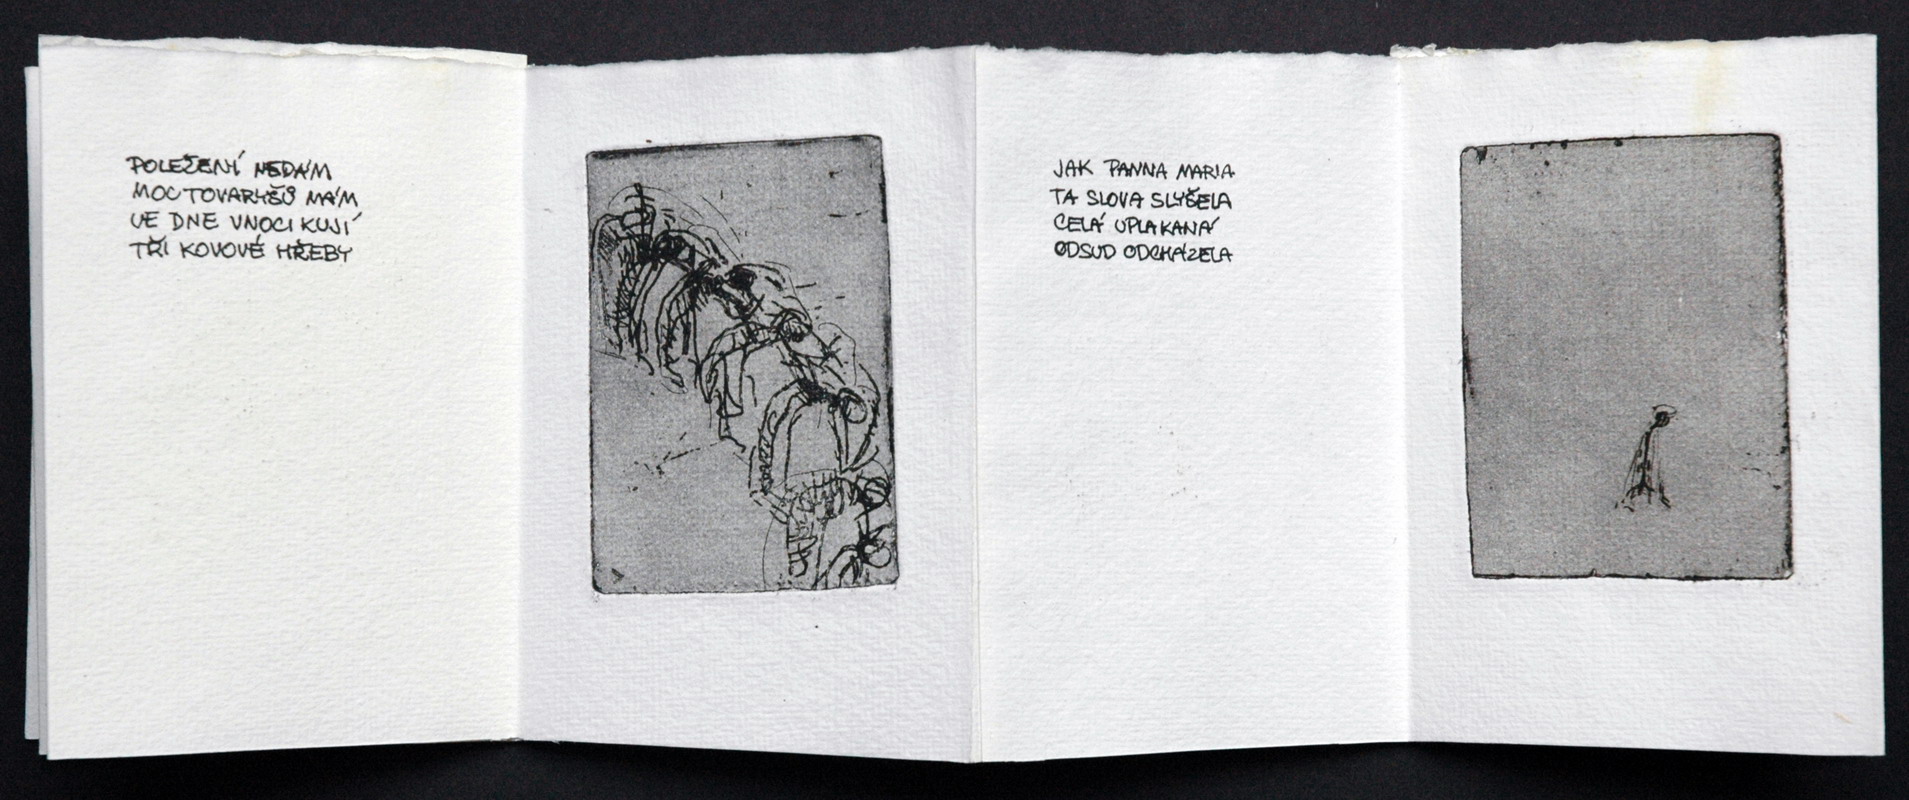 POLEŽENÍ NEDÁM
MOC TOVARYŠŮ MÁM
VE DNE VNOCI KUJÍ
TŘI KOVOVÉ HŘEBY
JAK PANNA MARIA
TA SLOVA SLYŠELA
CELÁ UPLAKANÁ
ODSUD ODCHÁZELA